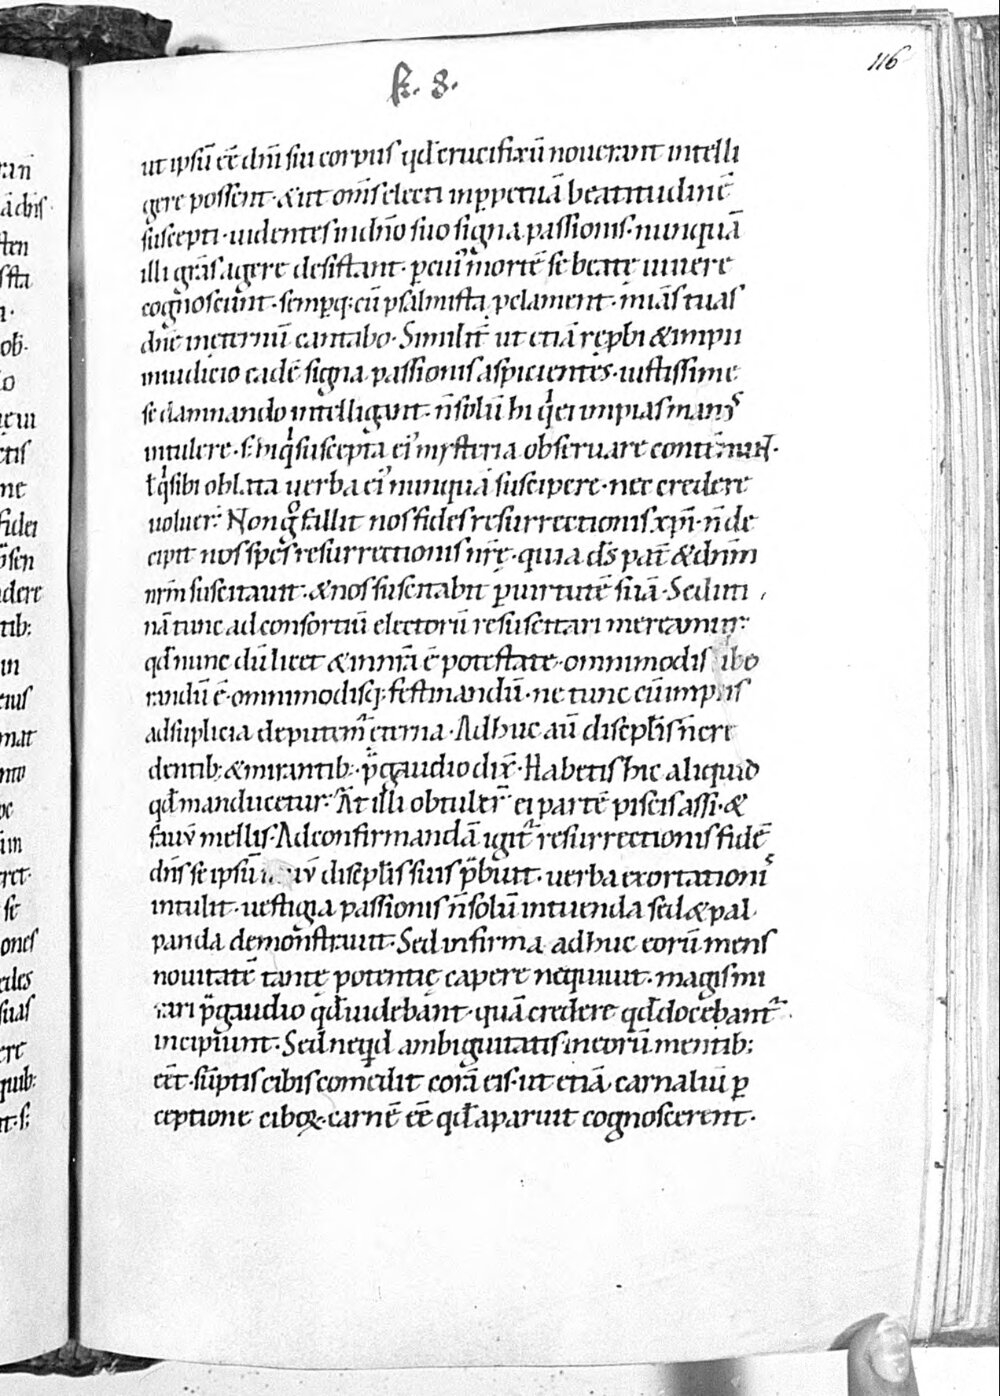 116
k. 8.
ut ipsū eē dnī sui corpus qđ crucifixū nouerant intelli
gere possent · & ut om̄s electi in ꝑpetuā beatitudinē
suscepti · uidentes in dn̄o suo signa passionis · nunquā
illi grās agere desistant · ꝑ cui᾽ mortē se beatę uiuere
cognoscunt · semꝑq; cū psalmista ꝓclament · mīas tuas
dn̄e in ęternū cantabo · Similit̄ ut etiā ręꝓbi & impii
in iudicio eadē signa passionis aspicientes · iustissime
se damnando intelligant · n̄ solū hi q̇ ei impias man᾽
intulere · s; hi q̇ suscepta ei᾽ mysteria obseruare
ł q̇ sibi oblata uerba ei᾽ nunquā suscipere · nec credere
uoluer̄ · Non g̊ fallit nos fides resurrectionis xp̄i · n̄ de
cipit nos spes resurrectionis nr̄ę · quia d̄s pat̄ & dn̄m
nrm̄ suscitauit · & nos suscitabit ꝑ uirtutē suā · Sed uti
nā tunc ad consortiū electorū resuscitari mereamur ·
qđ nunc dū licet & in nr̄a ē potestate · omnimodis
randū ē · omnimodisq; festinandū · ne tunc cū impiis
ad suplicia deputem᾽ ęterna · Adhuc aū discipłis n̄ cre
dentib; & mirantib; · p̄ gaudio dix̄ · Habetis hic aliquid
qđ manducetur · At illi obtuler̄ ei partē piscis assi · &
fauū mellis · Ad confirmandā igit᾽ resurrectionis fidē
dn̄s se ipsū discipłis suis p̄buit · uerba exortationis
intulit · uestigia passionis n̄ solū intuenda sed & pal
panda demonstrauit · Sed infirma adhuc eorū mens
nouitatē tantę potentię capere nequiuit · magis mi
rari p̄ gaudio qđ uidebant · quā credere qđ docebant᾽ ·
incipiunt · Sed ne quid ambiguitatis in eorū mentib;
eēt · sūptis cibis comedit corā eis · ut etiā carnaliū ꝑ
ceptione ciboꝝ · carnē eē qđ aparuit cognoscerent ·